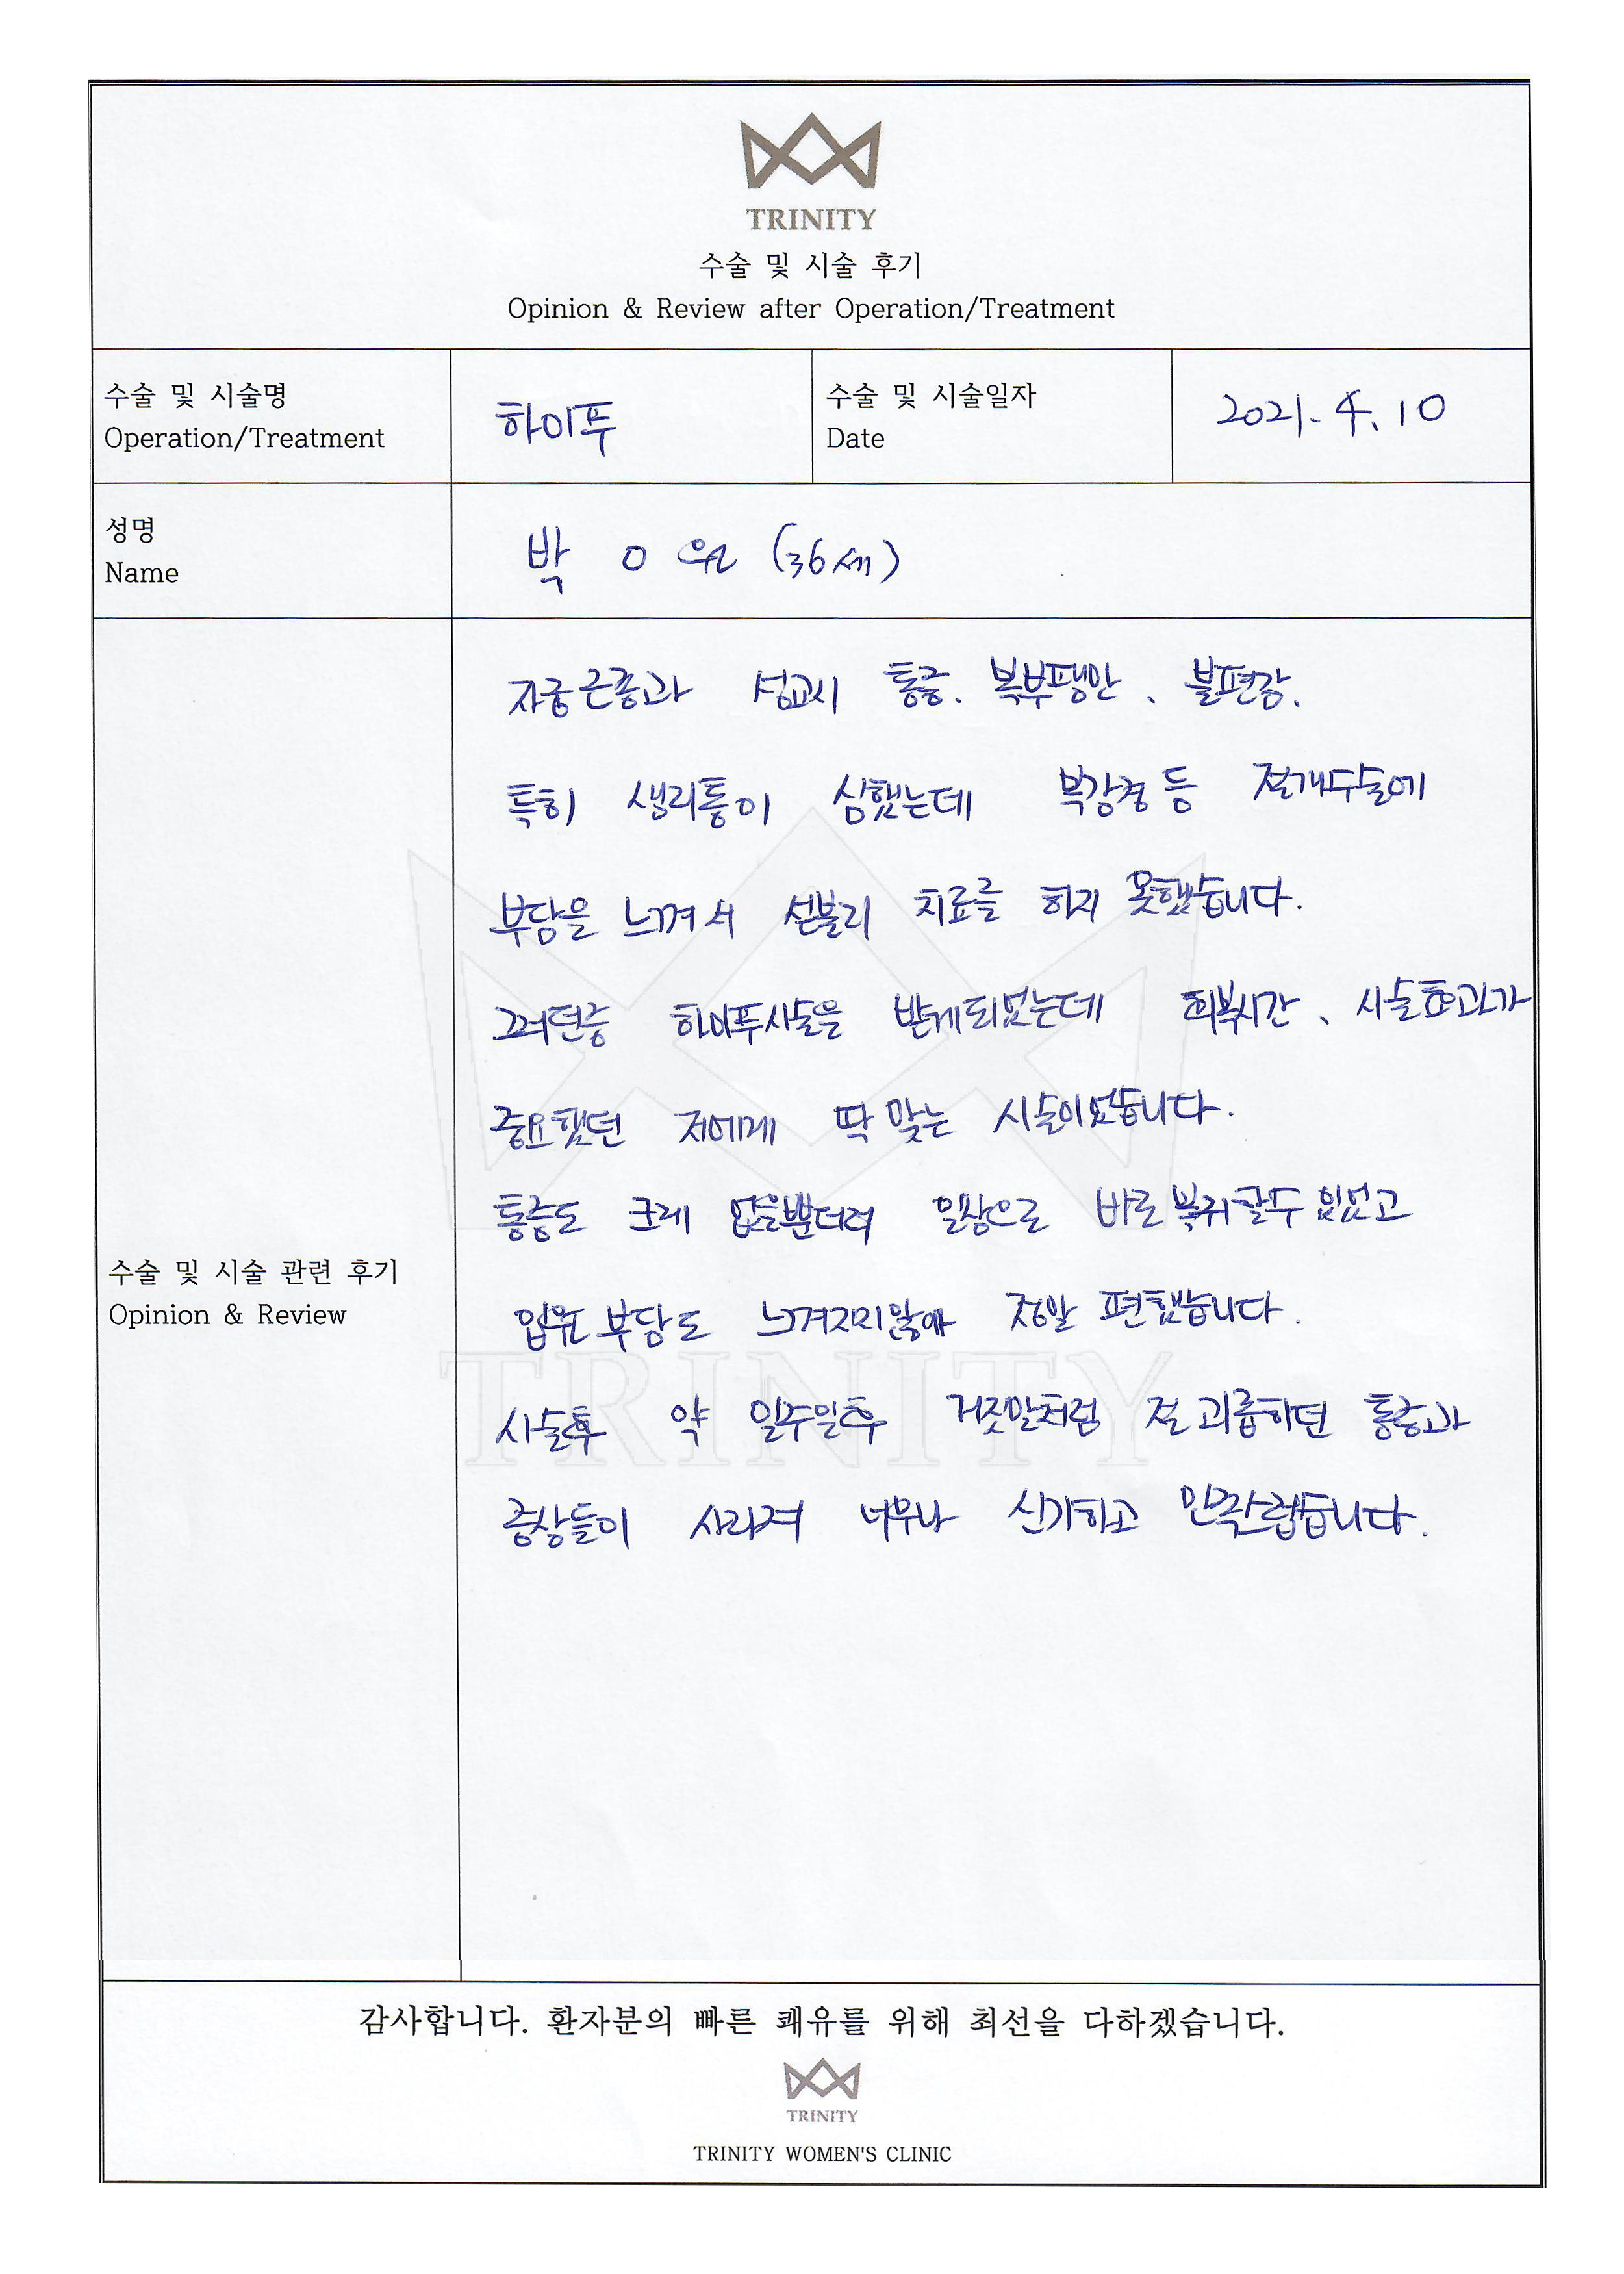 TRINITY
수술 및 시술 후기
Opinion & Review after Operation/Treatment
수술 및 시술명
Operation/Treatment
하이푸
수술 및 시술일자
Date
2021. 4. 10
성명
Name
박 O 원 (36세)
자궁근종과 성교시 통증. 복부팽만、불편감.
특히 생리통이 심했는데 복강경등 절개수술에
부담을 느껴서 섣불리 치료를 하지 못했습니다.
그러던중 하이푸시술을 받게되었는데 회복시간、시술효과가
중요했던 저에게 딱 맞는 시술이었습니다.
통증도 크게 없을뿐더러 일상으로 바로 복귀할수 있었고
입원 부담도 느껴지지않아 정말 편했습니다.
시술후 약 일주일후 거짓말처럼 절 괴롭히던 통증과
증상들이 사라져 너무나 신기하고 만족스럽습니다.
수술 및 시술 관련 후기
Opinion & Review
TRINITY
감사합니다. 환자분의 빠른 쾌유를 위해 최선을 다하겠습니다.
TRINITY
TRINITY WOMEN'S CLINIC